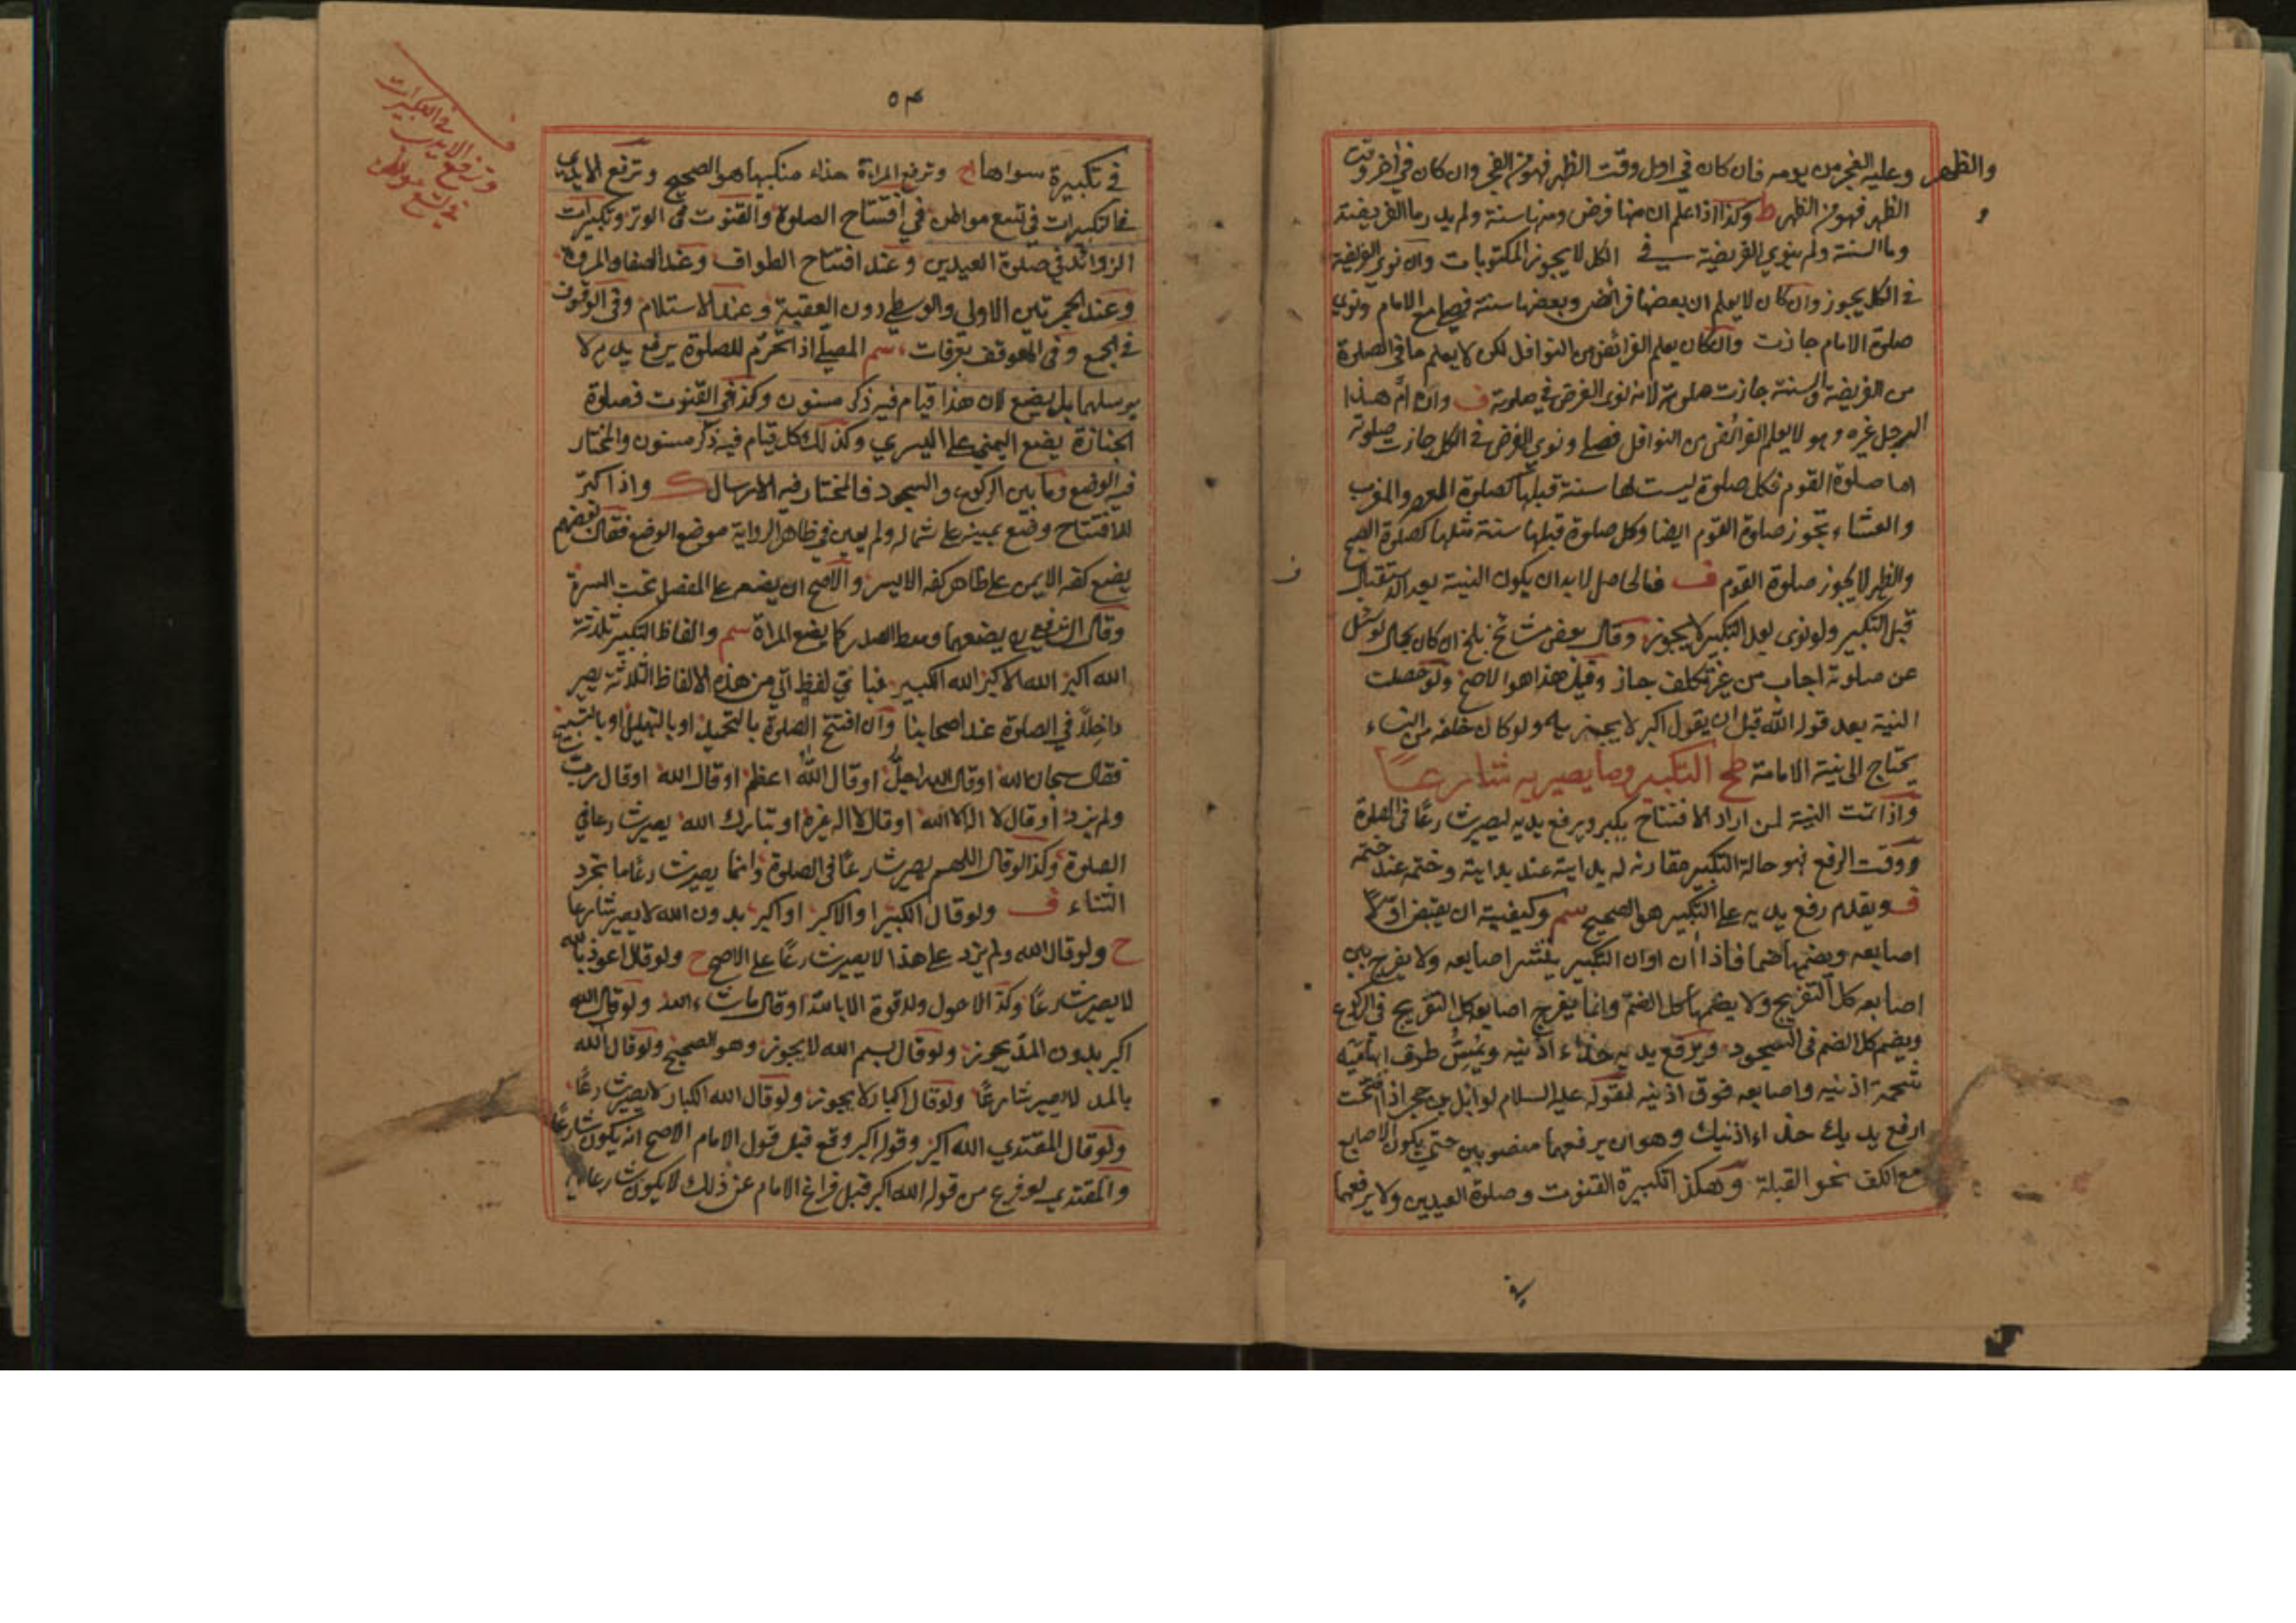 والظهر وعليه الفجر من يومه فان كان في اول وقت الظهر فهو من الفجر وان كان في اخر وقت
الظهر فهو من الظهر ط وكذا اذا علم ان منها فرض ومنها سنة ولم يدر ما الفريضة
وما السنة ولم ينوي الفريضة في الكل لا يجوز المكتوبات وان نوى الفريضة
في الكل يجوز وان كان لا يعلم ان بعضها فرائض وبعضها سنة فصلى مع الامام ونوى
صلوة الامام جازت وان كان يعلم الفرائض من النوافل لكن لا يعلم ما في الصلوة
من الفريضة والسنة جازت صلوته لانه نوى الفرض في صلوته ف وان ام هذا
الرجل غيره وهو لا يعلم الفرائض من النوافل فصلى ونوى الفرض في الكل جازت صلوته
اما صلوة القوم فكل صلوة ليست لها سنة قبلها كصلوة العصر والمغرب
والعشاء تجوز صلوة القوم ايضا وكل صلوة قبلها سنة مثلها كصلوة الصبح
والظهر لا يجوز صلوة القوم ف فالحاصل لا بد ان يكون النية بعد الاستقبال
قبل التكبير ولو نوى بعد التكبير لا يجوز وقال بعض مشائخ بلخ ان كان بحال لو سئل
عن صلوته اجاب من غير تكلف جاز وقيل هذا هو الاصح ولو حصلت
النية بعد قوله الله قبل ان يقول اكبر لا يجزيه ولو كان خلفه من النساء
يحتاج الى نية الامامة التكبير وما يصير به شارعا
واذا تمت النية لمن اراد الافتتاح يكبر ويرفع يديه ليصير شارعا في الصلوة
ووقت الرفع فهو حالة التكبير مقارنه له بدايته عند بدايته وختمه عند ختمه
ف ويقدم رفع يديه على التكبير هو الصحيح سم وكيفيته ان يقبض اولا
اصابعه ويضمها ضما فاذا ان اوان التكبير ينشر اصابعه ولا يفرج بين
اصابعه كل التفريج ولا يضمها كل الضم وانما يفرج اصابعه كل التفريج في الركوع
ويضم كل الضم في السجود ويرفع يديه حذاء اذنيه ويمس طرف ابهاميه
شحمة اذنيه واصابعه فوق اذنيه لقوله عليه السلام لوائل بن حجر اذا افتتحت
ارفع يديك حذاء اذنيك وهو ان يرفعهما منصوبين حتى يكون الاصابع
مع الكف نحو القبلة وهكذا تكبيرة القنوت وصلوة العيدين ولا يرفعهما
في
٥٣
في تكبيرة سواها ح وترفع المراة حذاء منكبيها هو الصحيح وترفع الايدي
في التكبيرات في تسع مواطن في افتتاح الصلوة والقنوت في الوتر وتكبيرات
الزوائد في صلوة العيدين وعند افتتاح الطواف وعند الصفا والمروة
وعند الجمرتين الاولى والوسطى دون العقبة وعند الاستلام وفي الوقوف
في الجمع وفي الموقف بعرفات سم المصلي اذا تحرم للصلوة يرفع يديه لا
يرسلهما بل يضع لان هذا قيام فيه ذكر مسنون وكذا في القنوت وصلوة
الجنازة يضع اليمنى على اليسرى وكذلك كل قيام فيه ذكر مسنون والمختار
فيه الوضع وما بين الركوع والسجود فالمختار فيه الارسال ك واذا كبر
للافتتاح وضع يمينه على شماله ولم يعين في ظاهر الرواية موضع الوضع فقال بعضهم
يضع كفه الايمن على ظاهر كفه الايسر والاصح ان يضعه على المفصل تحت السرة
وقال الشافعي يضعهما وسط الصدر كما يضع المراة سم والفاظ التكبير ثلاثة
الله اكبر الله الاكبر الله الكبير فباي لفظ اتى من هذه الالفاظ الثلاثة يصير
داخلا في الصلوة عند اصحابنا وان افتتح الصلوة بالتحميد او بالتهليل او بالتسبيح
فقال سبحان الله او قال الله اجل او قال الله اعظم او قال الله او قال رب
ولم يزد او قال لا اله الا الله او قال لا اله غيره او تبارك الله يصير شارعا في
الصلوة وكذا لو قال اللهم يصير شارعا في الصلوة وانما يصير شارعا ما تجرد
الثناء ف ولو قال الكبير او الاكبر او اكبر بدون الله لا يصير شارعا
ح ولو قال الله ولم يزد على هذا لا يصير شارعا على الاصح ح ولو قال اعوذ بالله
لا يصير شارعا وكذا لا حول ولا قوة الا بالله او قال ما شاء الله ولو قال الله
اكبر بدون المد يجوز ولو قال بسم الله لا يجوز وهو الصحيح ولو قال الله
بالمد لا يصير شارعا ولو قال اكبار لا يجوز ولو قال الله الكبار لا يصير شارعا
ولو قال المقتدي الله اكبر وقوله اكبر وقع قبل قول الامام الاصح انه يكون شارعا
والمقتدي لو فرغ من قوله الله اكبر قبل فراغ الامام عن ذلك لا يكون شارعا
وترفع الايدي
في التكبيرات
في تسع مواطن